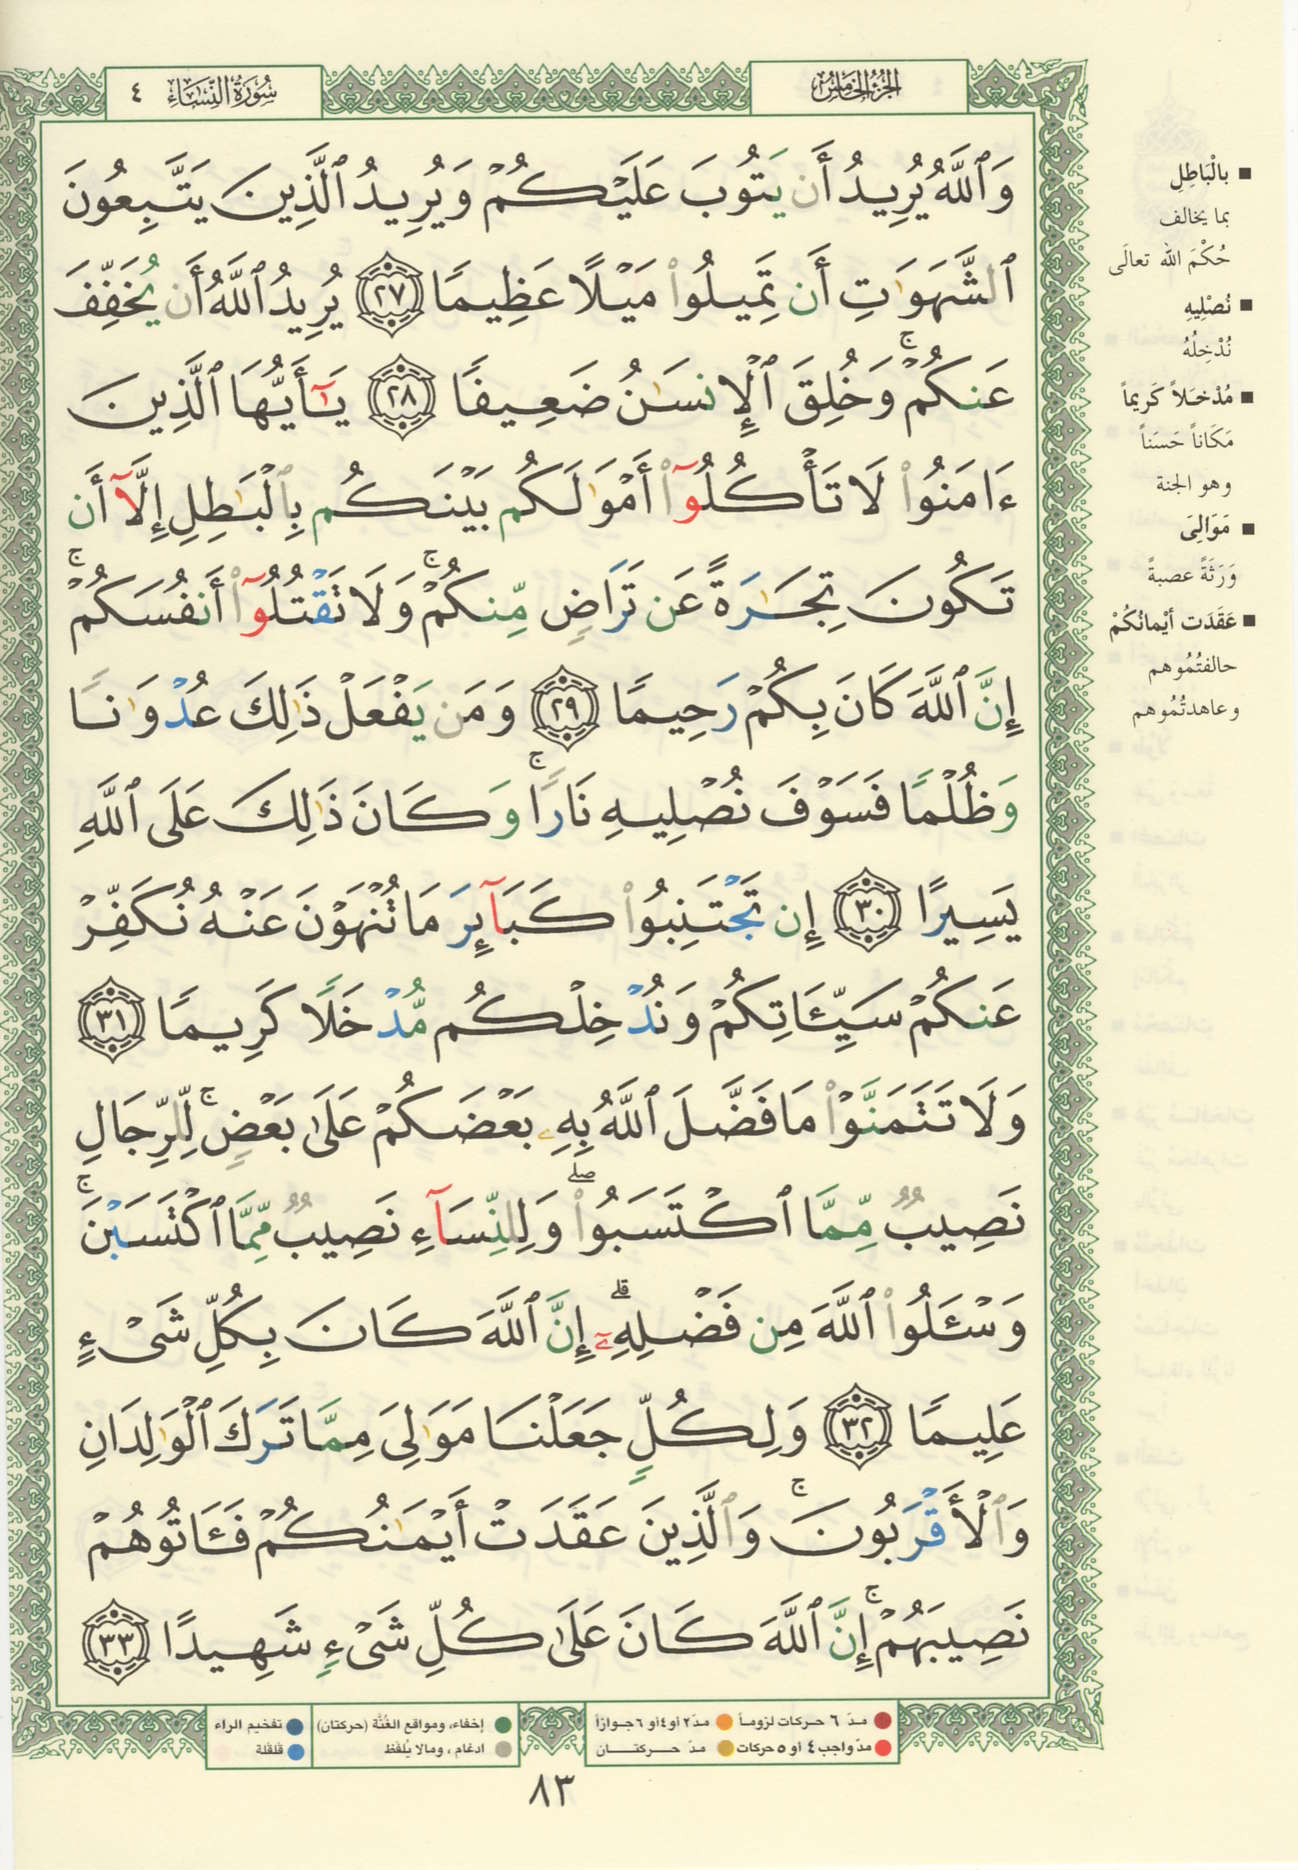 الجزء الخامس
سورة النساء ٤
وَٱللَّهُ يُرِيدُ أَن يَتُوبَ عَلَيْكُمْ وَيُرِيدُ ٱلَّذِينَ يَتَّبِعُونَ
ٱلشَّهَوَٰتِ أَن تَمِيلُوا۟ مَيْلًا عَظِيمًا ٢٧ يُرِيدُ ٱللَّهُ أَن يُخَفِّفَ
عَنكُمْ ۚ وَخُلِقَ ٱلْإِنسَٰنُ ضَعِيفًا ٢٨ يَٰٓأَيُّهَا ٱلَّذِينَ
ءَامَنُوا۟ لَا تَأْكُلُوٓا۟ أَمْوَٰلَكُم بَيْنَكُم بِٱلْبَٰطِلِ إِلَّآ أَن
تَكُونَ تِجَٰرَةً عَن تَرَاضٍ مِّنكُمْ ۚ وَلَا تَقْتُلُوٓا۟ أَنفُسَكُمْ ۚ
إِنَّ ٱللَّهَ كَانَ بِكُمْ رَحِيمًا ٢٩ وَمَن يَفْعَلْ ذَٰلِكَ عُدْوَٰنًا
وَظُلْمًا فَسَوْفَ نُصْلِيهِ نَارًا ۚ وَكَانَ ذَٰلِكَ عَلَى ٱللَّهِ
يَسِيرًا ٣٠ إِن تَجْتَنِبُوا۟ كَبَآئِرَ مَا تُنْهَوْنَ عَنْهُ نُكَفِّرْ
عَنكُمْ سَيِّـَٔاتِكُمْ وَنُدْخِلْكُم مُّدْخَلًا كَرِيمًا ٣١
وَلَا تَتَمَنَّوْا۟ مَا فَضَّلَ ٱللَّهُ بِهِۦ بَعْضَكُمْ عَلَىٰ بَعْضٍ ۚ لِّلرِّجَالِ
نَصِيبٌ مِّمَّا ٱكْتَسَبُوا۟ ۖ وَلِلنِّسَآءِ نَصِيبٌ مِّمَّا ٱكْتَسَبْنَ ۚ
وَسْـَٔلُوا۟ ٱللَّهَ مِن فَضْلِهِۦٓ ۗ إِنَّ ٱللَّهَ كَانَ بِكُلِّ شَىْءٍ
عَلِيمًا ٣٢ وَلِكُلٍّ جَعَلْنَا مَوَٰلِىَ مِمَّا تَرَكَ ٱلْوَٰلِدَانِ
وَٱلْأَقْرَبُونَ ۚ وَٱلَّذِينَ عَقَدَتْ أَيْمَٰنُكُمْ فَـَٔاتُوهُمْ
نَصِيبَهُمْ ۚ إِنَّ ٱللَّهَ كَانَ عَلَىٰ كُلِّ شَىْءٍ شَهِيدًا ٣٣
■ بالْبَاطِلِ
بما يخالف
حُكْمَ الله تعالَى
■ نُصْلِيهِ
نُدْخِلُهُ
■ مُدْخَلاً كَريماً
مَكَاناً حَسَناً
وهو الجنة
■ مَوَالِىَ
وَرَثَةً عصبةً
■ عَقَدَت أَيْمانُكُمْ
حالفتُمُوهم
وعاهدتُمُوهم
مدّ ٦ حركات لزوماً مدّ ٢ أو ٤ أو ٦ جوازاً
مدّ واجب ٤ أو ٥ حركات مدّ حركتان
إخفاء، ومواقع الغُنَّة (حركتان) تفخيم الراء
ادغام ، ومالا يُلفَظ قلقلة
٨٣